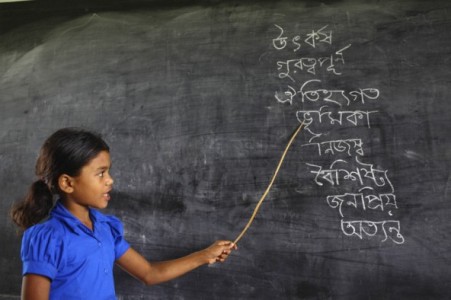 উৎকর্ষ
গুরত্বপূর্ন
ঐতিহ্যগত
ভূমিকা
নিজস্ব
বৈশিষ্ট্য
জনপ্রিয়
অত্যন্ত